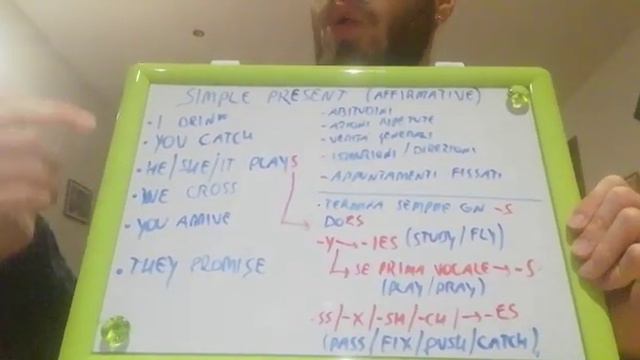 SIMPLE PRESENT (AFFIRMATIVE)
• I DRINK
• YOU CATCH
• HE/SHE/IT PLAYS
• WE CROSS
• YOU ARRIVE
• THEY PROMISE
- ABITUDINI
- AZIONI RIPETUTE
- VERITÀ GENERALI
- ISTRUZIONI / DIREZIONI
- APPUNTAMENTI FISSATI
• TERMINA SEMPRE CON -S
DOES
-Y → -IES (STUDY/FLY)
↳ SE PRIMA VOCALE → -S
(PLAY/PRAY)
-SS/-X/-SH/-CH/ → -ES
(PASS/FIX/PUSH/CATCH)